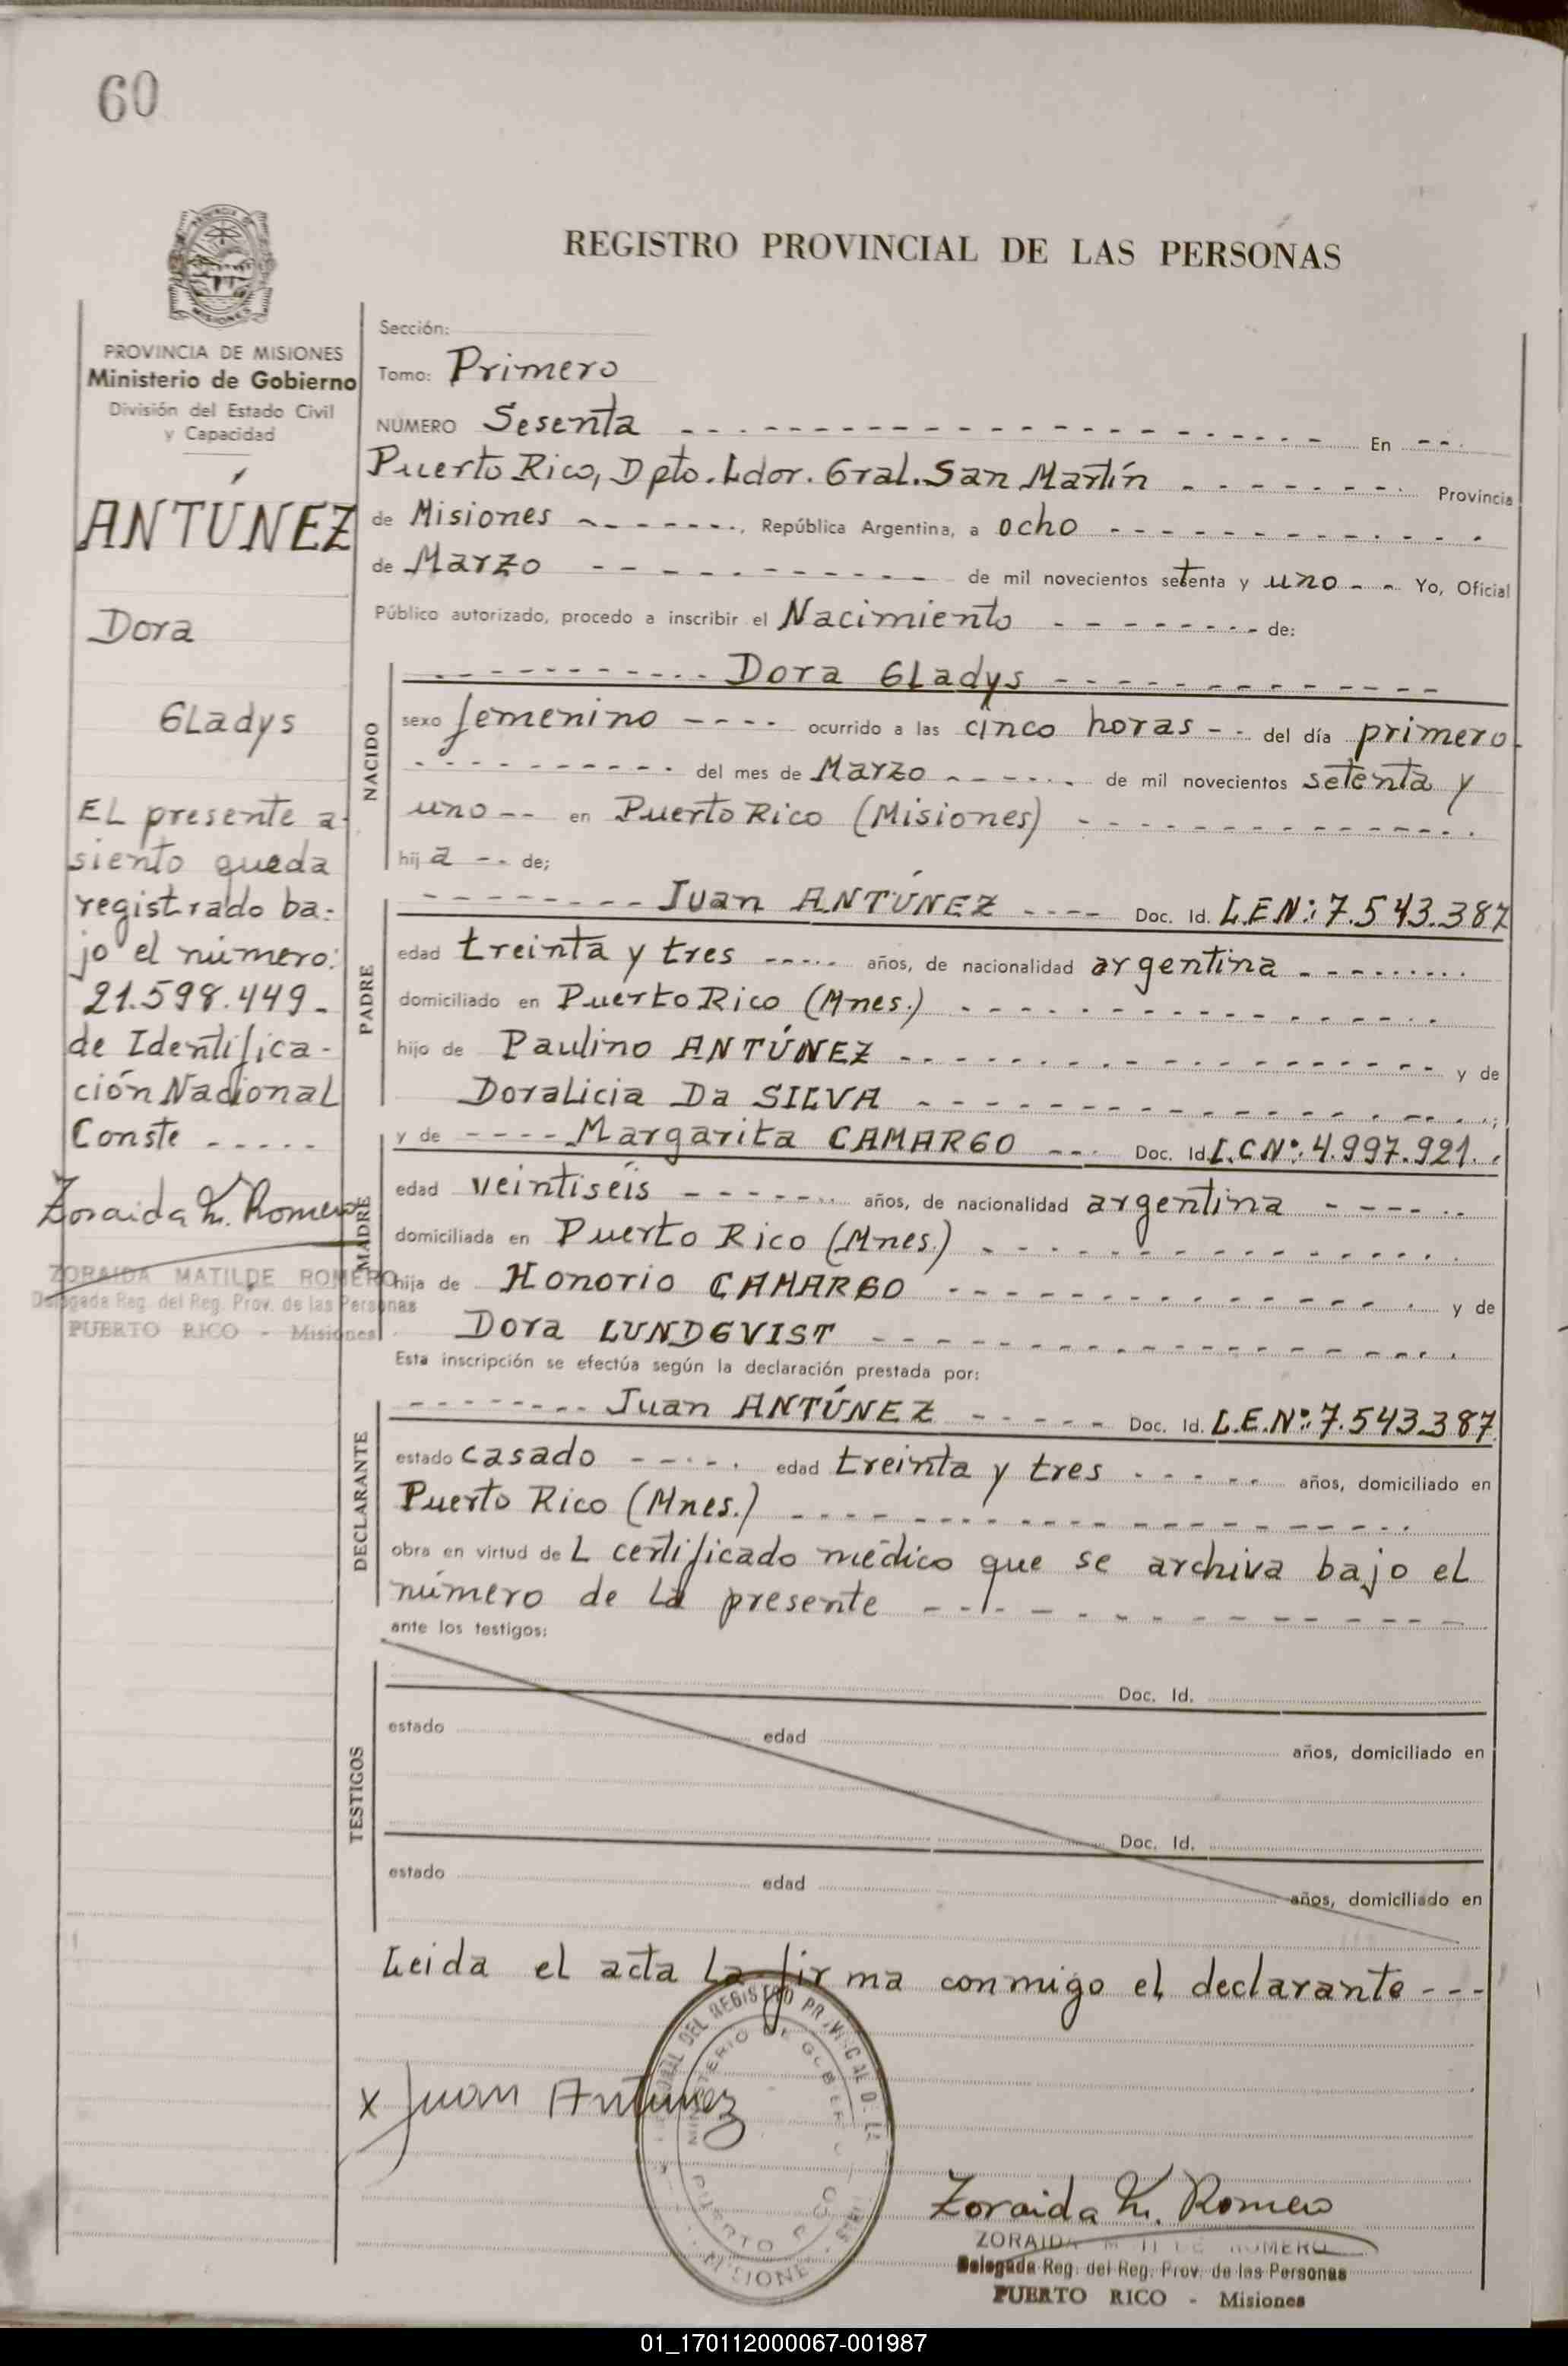 60
REGISTRO PROVINCIAL DE LAS PERSONAS
PROVINCIA DE MISIONES
Ministerio de Gobierno
División del Estado Civil
y Capacidad
ANTÚNEZ
Dora
Gladys
El presente a-
siento queda
registrado ba-
jo el número:
21.598.449-
de Identifica-
ción Nacional
Conste -----
Zoraida M. Romero
ZORAIDA MATILDE ROMERO
Delegada Reg. del Reg. Prov. de las Personas
PUERTO RICO - Misiones
Sección:
Tomo: Primero
NÚMERO Sesenta ---------- En ---
Puerto Rico, Dpto. Ldor. Gral. San Martín -------- Provincia
de Misiones -------, República Argentina, a ocho ----------
de Marzo ---------- de mil novecientos setenta y uno -- Yo, Oficial
Público autorizado, procedo a inscribir el Nacimiento -------- de:
NACIDO
---------- Dora Gladys ----------
sexo femenino ---- ocurrido a las cinco horas -- del día primero-
---------- del mes de Marzo ------ de mil novecientos setenta y
uno -- en Puerto Rico (Misiones) ----------
hija -- de;
PADRE
-------- Juan ANTÚNEZ ---- Doc. Id. L.E.Nº: 7.543.387
edad treinta y tres ----- años, de nacionalidad argentina ---------
domiciliado en Puerto Rico (Mnes.) ----------
hijo de Paulino ANTÚNEZ ---------- y de
Doralicia Da SILVA ----------;
MADRE
y de ---- Margarita CAMARGO --- Doc. Id. L.C.Nº: 4.997.921.
edad veintiséis ------- años, de nacionalidad argentina ------
domiciliada en Puerto Rico (Mnes.) ----------
hija de Honorio CAMARGO ---------- y de
Dora LUNDGVIST ----------
Esta inscripción se efectúa según la declaración prestada por:
DECLARANTE
-------- Juan ANTÚNEZ ----- Doc. Id. L.E.Nº: 7.543.387
estado casado ----- edad treinta y tres ----- años, domiciliado en
Puerto Rico (Mnes.) ----------
obra en virtud del certificado médico que se archiva bajo el
número de la presente ----------
ante los testigos:
TESTIGOS
Doc. Id.
estado edad años, domiciliado en
Doc. Id.
estado edad años, domiciliado en
Leida el acta la firma conmigo el declarante ---
x Juan Antunez
Zoraida M. Romero
ZORAIDA ROMERO
Delegada Reg. del Reg. Prov. de las Personas
PUERTO RICO - Misiones
01_170112000067-001987